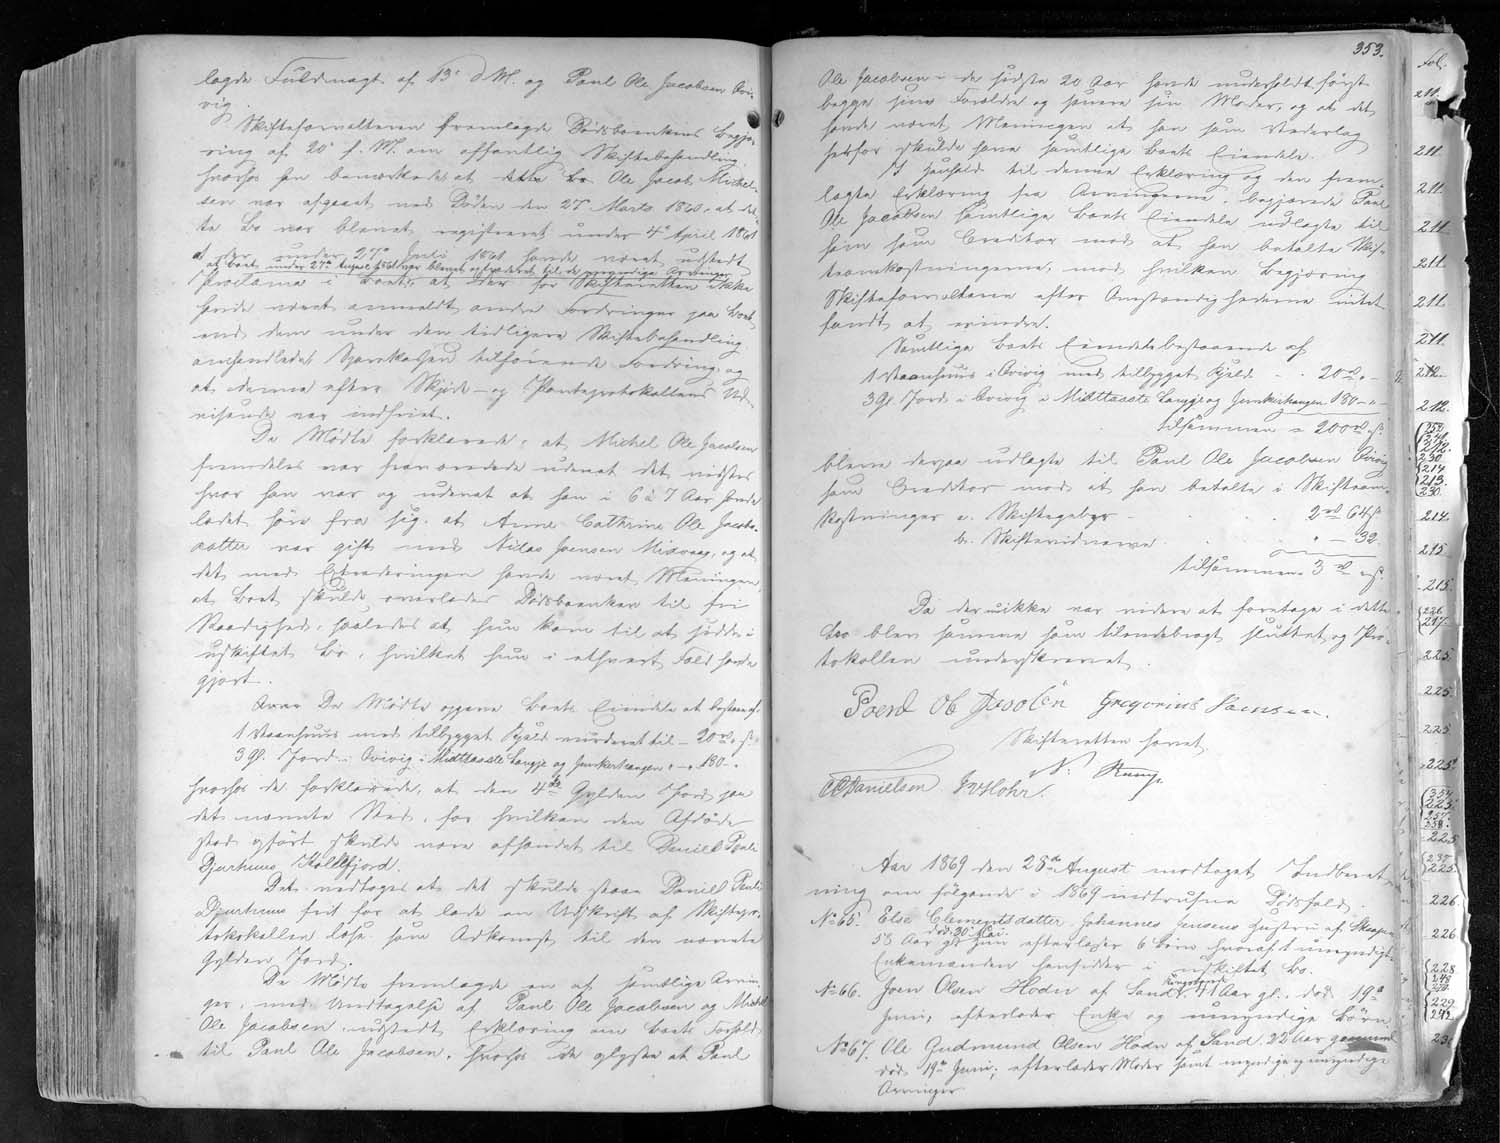 lagde Fuldmagt af 13de d. M. og Paul Ole Jacobsen Qvi-
vig.
Skifteforvalteren fremlagde Dødsboenkens Begjæ-
ring af 20de f. M. om offentlig Skiftebehandling,
hvorhos han bemærkede at Ole Jacob Michel-
sen var afgaaet ved Døden den 27 Marts 1860, at det-
te Bo var blevet registreret under 4de April 1861
at der under 27de Juli 1861 havde været udstedt
at Boet under 27de August 1861 var blevet extraderet til de myndige Arvinger
Proclama i Boet, at der for Skifteretten ikke
havde været anmeldt andre Fordringer paa Boet
end den under den tidligere Skiftebehandling
omhandlede Sparekassen tilhørende Fordring, og
at denne efter Skjøde- og Panteprotokollens Ud-
visende var indfriet.
De Mødte forklarede, at Michel Ole Jacobsen
fremdeles var fraværende uden at det vidstes
hvor han var og uden at han i 6 à 7 Aar havde
ladet høre fra sig, at Anne Cathrine Ole Jacobs-
datter var gift med Niclas Joensen Misvaag, og at
det med Extraderingen havde været Meningen,
at Boet skulde overlades Dødsboenken til fri
Raadighed, saaledes at hun kom til at sidde i
uskiftet Bo, hvilket hun i ethvert Fald havde
gjort.
De Mødte opgave Boets Eiendele at bestaae af:
1 Vaanhuus med tilbygget Hjald vurderet til - 20 rd. " s.
3 Gl. Jord i Qvivig i Midttaaste Længje og Junkerhaugen " - " 180 - "
hvorhos de forklarede, at den 4de Gylden Jord paa
det nævnte Sted, for hvilken den Afdøde
stod opført skulde være afhændet til Daniel Pauli
Djurhuus Kollefjord.
Det vedtoges at det skulde staae Daniel Pauli
Djurhuus frit for at lade en Udskrift af Skiftepro-
tokollen læse som Adkomst til den nævnte
Gylden Jord.
De Mødte fremlagde en af samtlige Arvin-
ger, med Undtagelse af Paul Ole Jacobsen og Michel
Ole Jacobsen udstedt Erklæring om Boets Forhold
til Paul Ole Jacobsen, hvorhos de oplyste at Paul
353.
Ole Jacobsen i de sidste 20 Aar havde underholdt først
begge sine Forældre og senere sin Moder, og at det
havde været Meningen at han som Vederlag
herfor skulde have samtlige Boets Eiendele.
I Henhold til denne Erklæring og den frem-
lagte Erklæring fra Arvingerne, begjærede Paul
Ole Jacobsen samtlige Boets Eiendele udlagte til
ham som Creditor mod at han betalte Skif-
teomkostningerne, mod hvilken Begjæring
Skifteforvalteren efter Omstændighederne intet
fandt at erindre.
Samtlige Boets Eiendele bestaaende af
1 Vaanhuus i Qvivig med tilbygget Hjald - - 20 rd. " -
3 Gl. Jord i Qvivig i Midttaaste Længje og Junkerhaugen 180 - " -
tilsammen = 200 rd. " s.
bleve derpaa udlagte til Paul Ole Jacobsen Qvivig
som Creditor mod at han betalte i Skifteom-
kostninger a. Skiftegebyr - 2 rd. 64 s.
b. Skiftevidnerne " - 32.
tilsammen 3 rd. " s.
Da der ikke var videre at foretage i dette
Bo blev samme som tilendebragt sluttet og Pro-
tokollen underskrevet.
Poevl Ob Jacobsen Gregorius Joensen.
Skifteretten hævet
C Danielsen J. Mohr.
Aar 1869 den 28de August modtaget Indberet-
ning om følgende i 1869 indtrufne Dødsfald.
No 65. Else Clementsdatter, Johannes Jensens Hustru af Skaapen
død 30te Mai.
58 Aar gl. hun efterlader 6 Børn hvoraf 1 umyndigt.
Enkemanden hensidder i uskiftet Bo.
No 66. Joen Olsen Hodn af Sand, 41 Aar gl. død 19de
Juni, efterlader Enke og umyndige Børn
No 67. Ole Gudmund Olsen Hodn af Sand, 22 Aar gammel
død 19de Juni, efterlader Moder samt myndige og umyndige
Arvinger
Fol.
211.
211.
211.
211.
211.
211.
211.
212.
212.
230.
214
213.
230.
214.
215
215.
226
217.
225.
225.
225.
225.
354
225.
357.
358.
225
225.
226.
226
228
229
242.